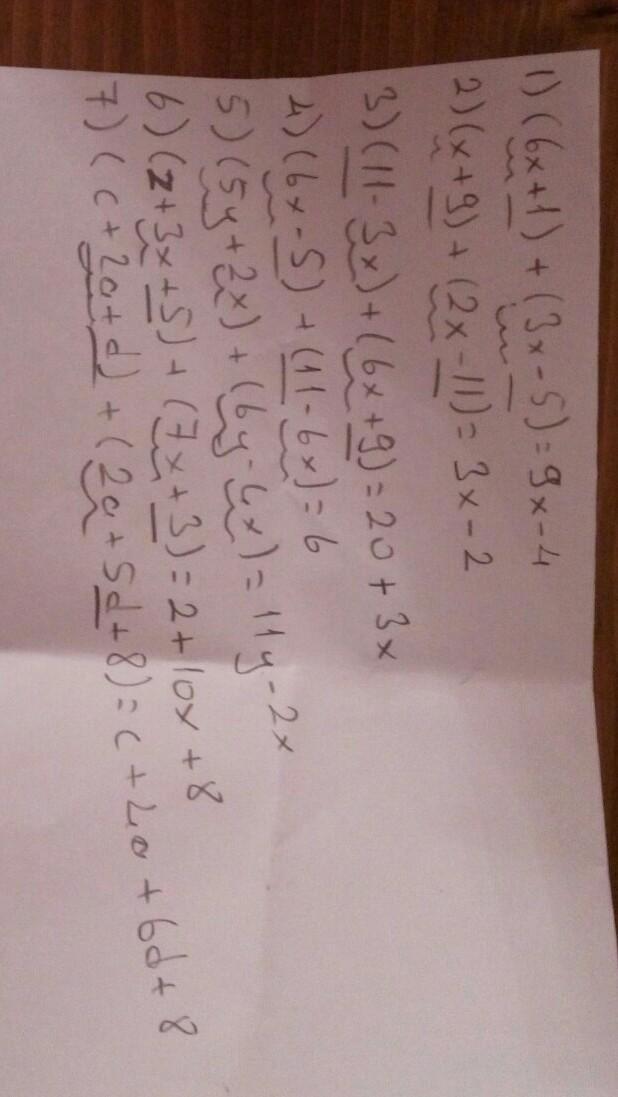 1) (6x+1) + (3x-5) = 9x-4
2) (x+9) + (2x-11) = 3x-2
3) (11-3x) + (6x+9) = 20+3x
4) (6x-5) + (11-6x) = 6
5) (5y+2x) + (6y-4x) = 11y-2x
6) (z+3x+5) + (7x+3) = 2+10x+8
7) (c+2a+d) + (2a+5d+8) = c+4a+6d+8